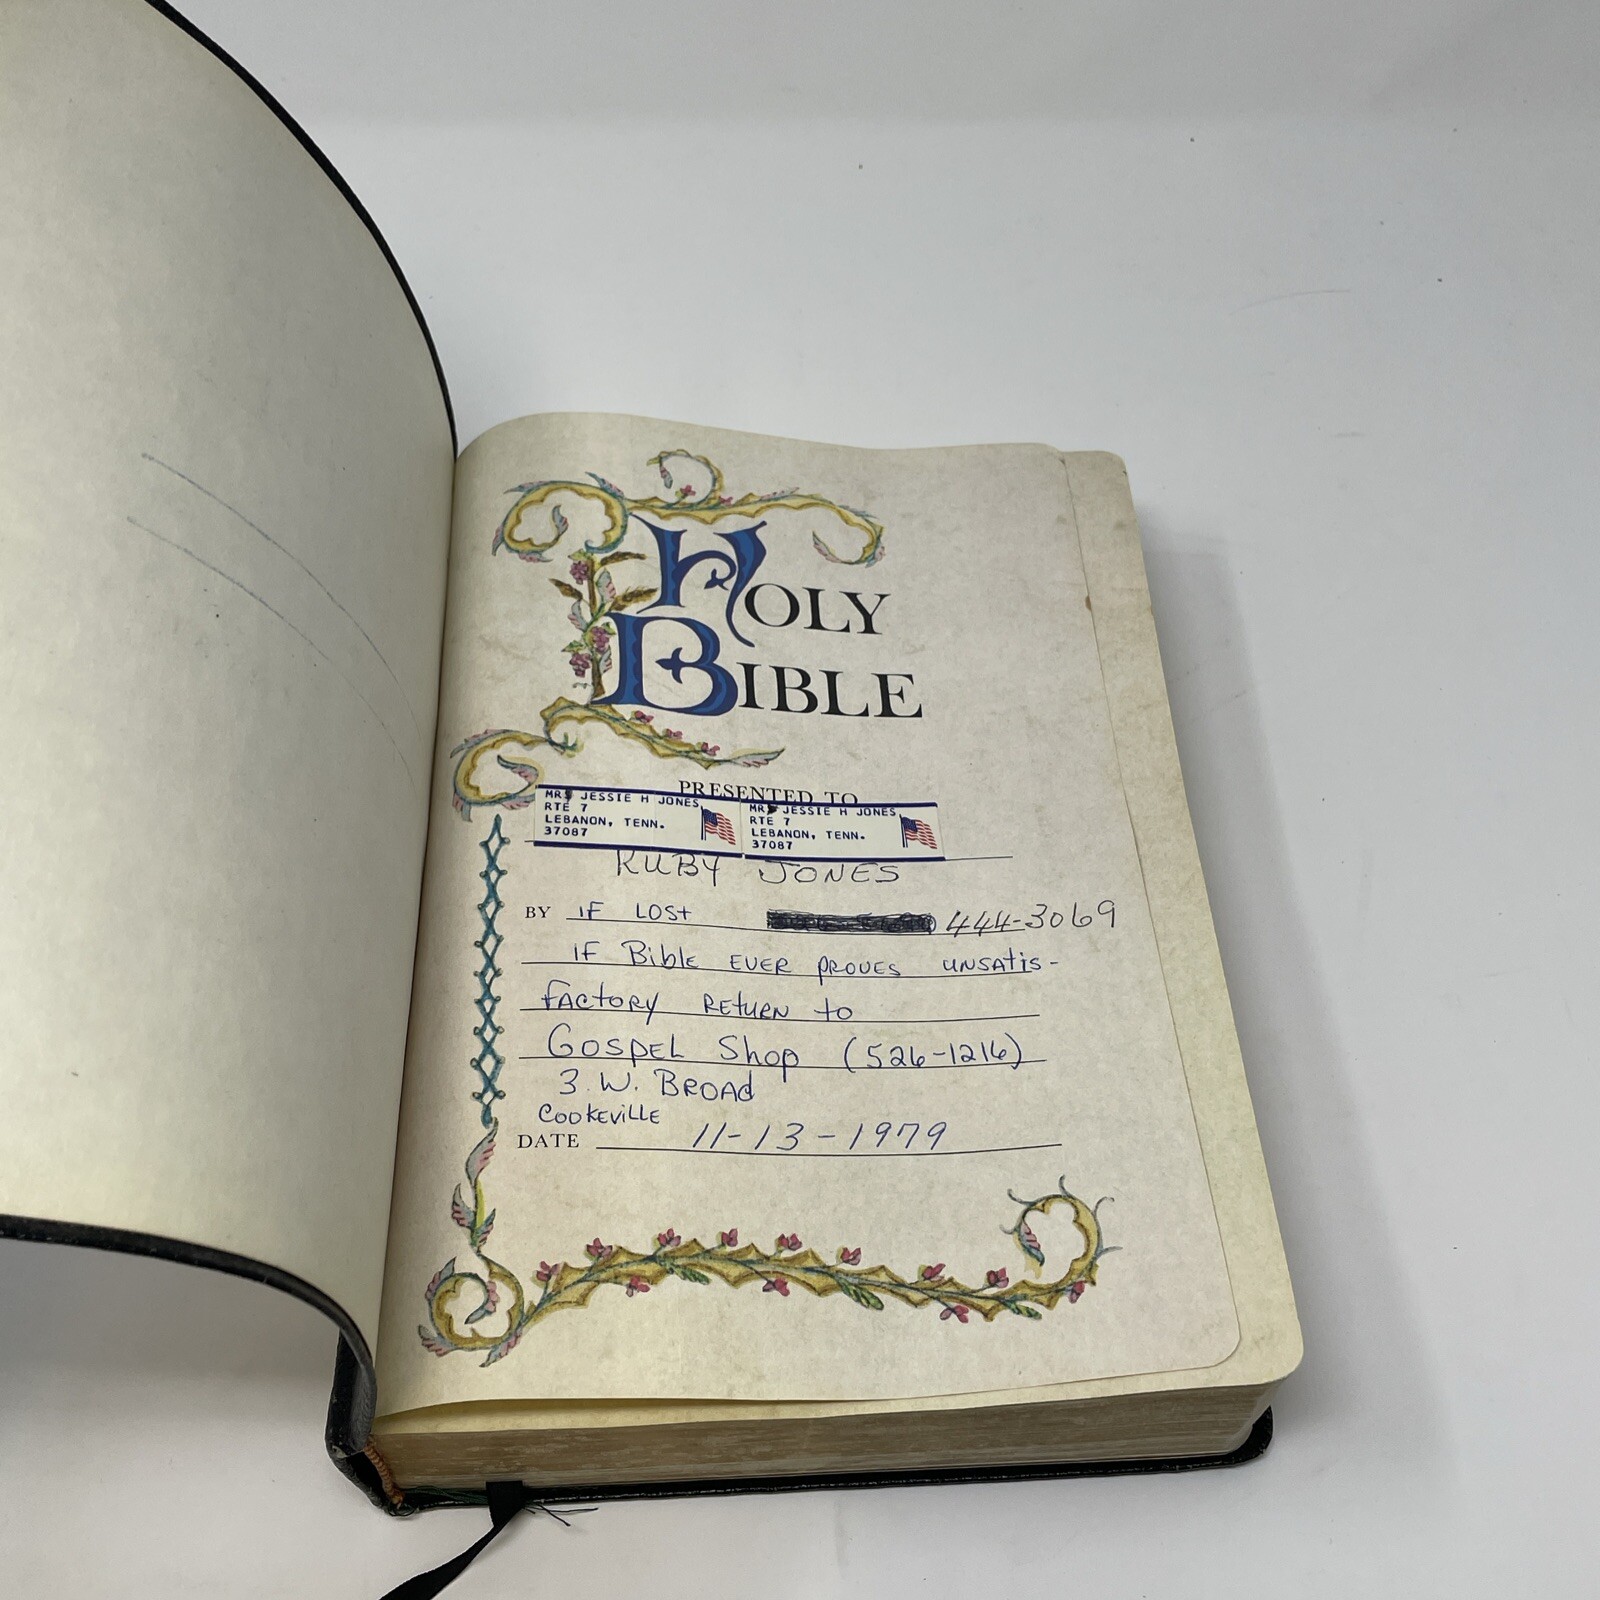 HOLY
BIBLE
PRESENTED TO
MRS JESSIE H JONES
RTE 7
LEBANON, TENN.
37087
MRS JESSIE H JONES
RTE 7
LEBANON, TENN.
37087
RUBY JONES
BY IF LOST 444-3069
IF Bible EVER PROVES UNSATIS-
FACTORY RETURN to
GOSPEL Shop (526-1216)
3 W. BROAD
COOKEVILLE
DATE 11-13-1979